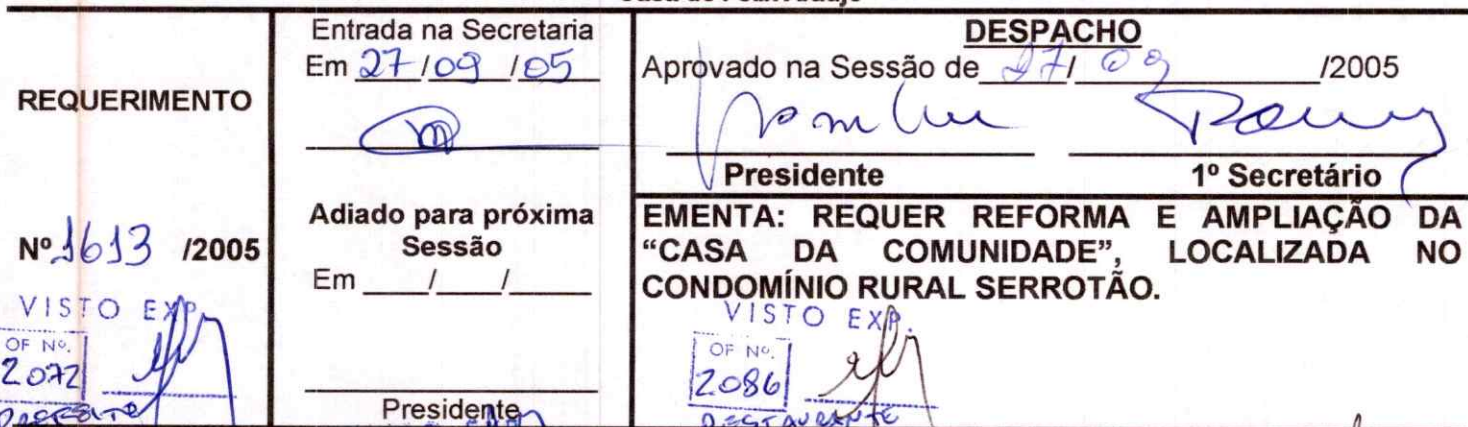 REQUERIMENTO
Nº 1613 /2005
VISTO EXP.
OF Nº.
2072
Entrada na Secretaria
Em 27/09/05
Adiado para próxima
Sessão
Em ____/____/_____
Presidente
DESPACHO
Aprovado na Sessão de 27/ 09 /2005
Presidente 1º Secretário
EMENTA: REQUER REFORMA E AMPLIAÇÃO DA
“CASA DA COMUNIDADE”, LOCALIZADA NO
CONDOMÍNIO RURAL SERROTÃO.
VISTO EXP.
OF Nº.
2086